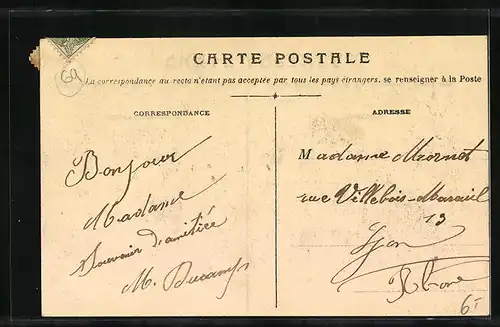 69
CARTE POSTALE
La correspondance au recto n'étant pas acceptée par tous les pays étrangers, se renseigner à la Poste
CORRESPONDANCE
Bonjour
Madame
Souvenir d'amitiée
M. Ducamp
ADRESSE
Madame
rue Villebois-Mareuil
13
Lyon
Rhone
6